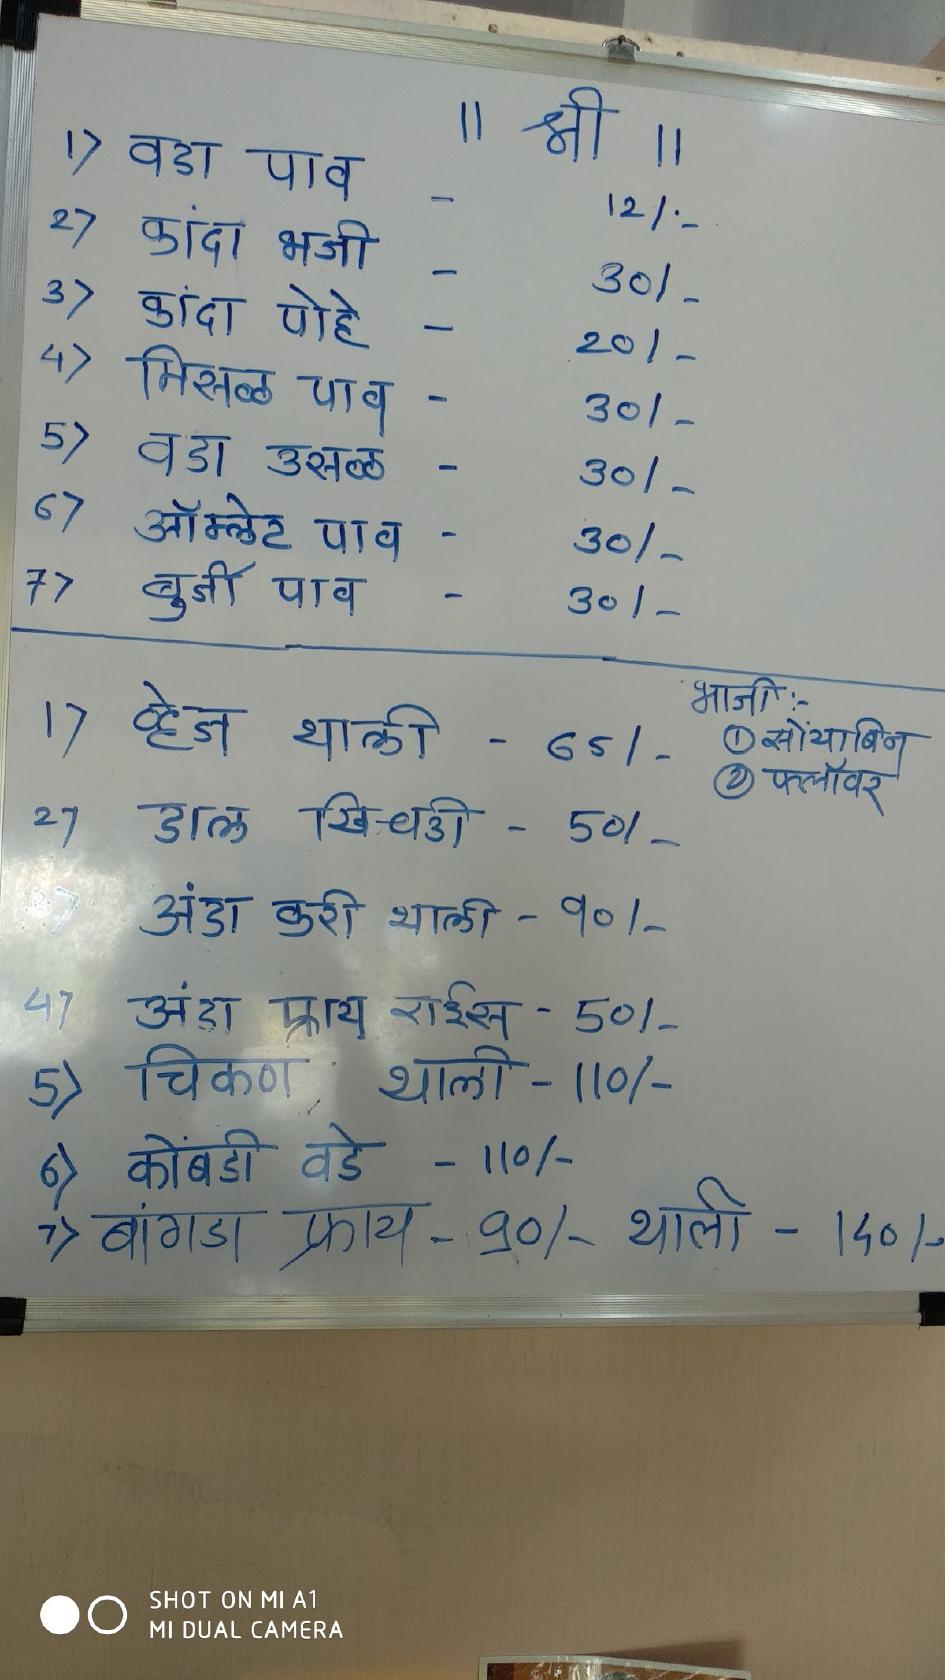 ॥ श्री ॥
1> वडा पाव - 12/-
2> कांदा भजी - 30/-
3> कांदा पोहे - 20/-
4> मिसळ पाव - 30/-
5> वडा उसळ - 30/-
6> ऑम्लेट पाव - 30/-
7> बुर्जी पाव - 30/-
भाजी :-
1> व्हेज थाळी - 65/- ① सोयाबिन
② फ्लॉवर
2> डाळ खिचडी - 50/-
3> अंडा करी थाळी - 90/-
4> अंडा फ्राय राईस - 50/-
5> चिकण थाळी - 110/-
6> कोंबडी वडे - 110/-
7> बांगडा फ्राय - 90/- थाळी - 140/-
SHOT ON MI A1
MI DUAL CAMERA